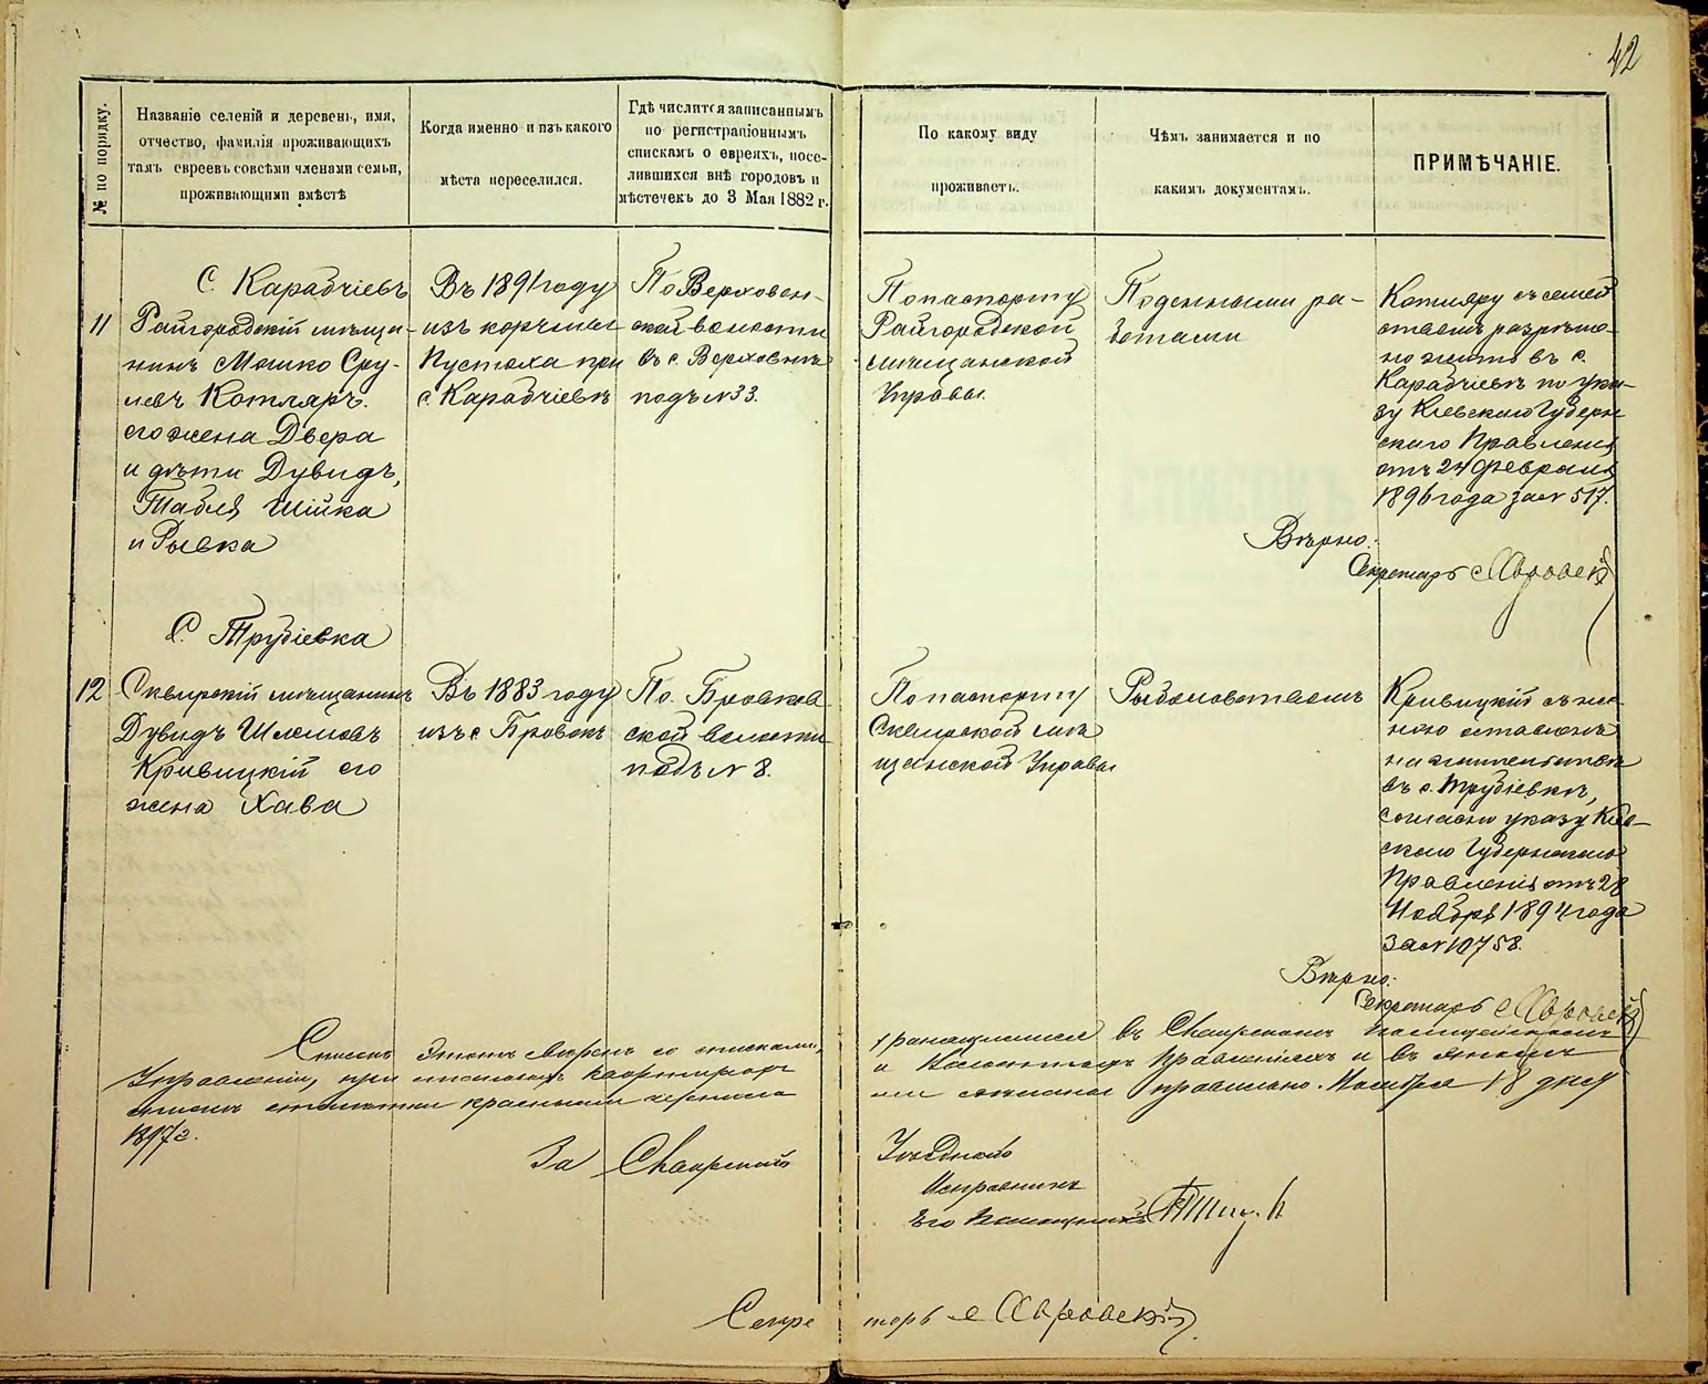 42
№ по порядку.
Названіе селеній и деревень, имя,
отчество, фамилія проживающихъ
тамъ евреевъ совсѣми членами семьи,
проживающими вмѣстѣ
Когда именно и изъ какого
мѣста переселился.
Гдѣ числится записаннымъ
по регистраціоннымъ
спискамъ о евреяхъ, посе-
лившихся внѣ городовъ и
мѣстечекъ до 3 Мая 1882 г.
По какому виду
проживаетъ.
Чѣмъ занимается и по
какимъ документамъ.
ПРИМѢЧАНІЕ.
С. Карабчіевъ
11
Райгородскій мѣща-
нинъ Мошко Сру-
левъ Котляръ.
его жена Двера
и дѣти Дувидъ,
Табля Шійка
и Рывка
Въ 1891 году
изъ корчмы
Пустоха при
с. Карабчіевѣ
По Верховен-
ской волости
въ с. Верховнѣ
подъ № 33.
По паспорту
Райгородской
мѣщанской
Управы.
Поденными ра-
ботами
Котляру съ семей
ствомъ разрѣше-
но жить въ с.
Карабчіевѣ по ука-
зу Кіевскаго Губерн
скаго Правленія
отъ 24 Февраля
1896 года за № 517.
Вѣрно:
Секретарь
С. Трубіевка
12
Сквирскій мѣщанинъ
Дувидъ Шлемовъ
Кривицкій его
жена Хава
Въ 1883 году
изъ с. Бровокъ
По Бровков
ской волости
подъ № 8.
По паспорту
Сквирской мѣ
щанской Управы
Рыболовствомъ
Кривицкій съ же-
ною оставленъ
на жительствѣ
въ с. Трубіевкѣ,
согласно указу Кіев-
скаго Губернскаго
Правленія отъ 28
Ноября 1894 года
за № 10758.
Вѣрно:
Секретарь
Списокъ этотъ свѣренъ со списками, хранящимися въ Сквирскомъ Полицейскомъ
Управленіи, при и Волостныхъ Правленіяхъ и въ
красными чернила ми сдѣланы правильно. Ноября 18 дня
1897 г.
За Сквирскаго Уѣзднаго
Исправника
Его Помощникъ
Секретарь